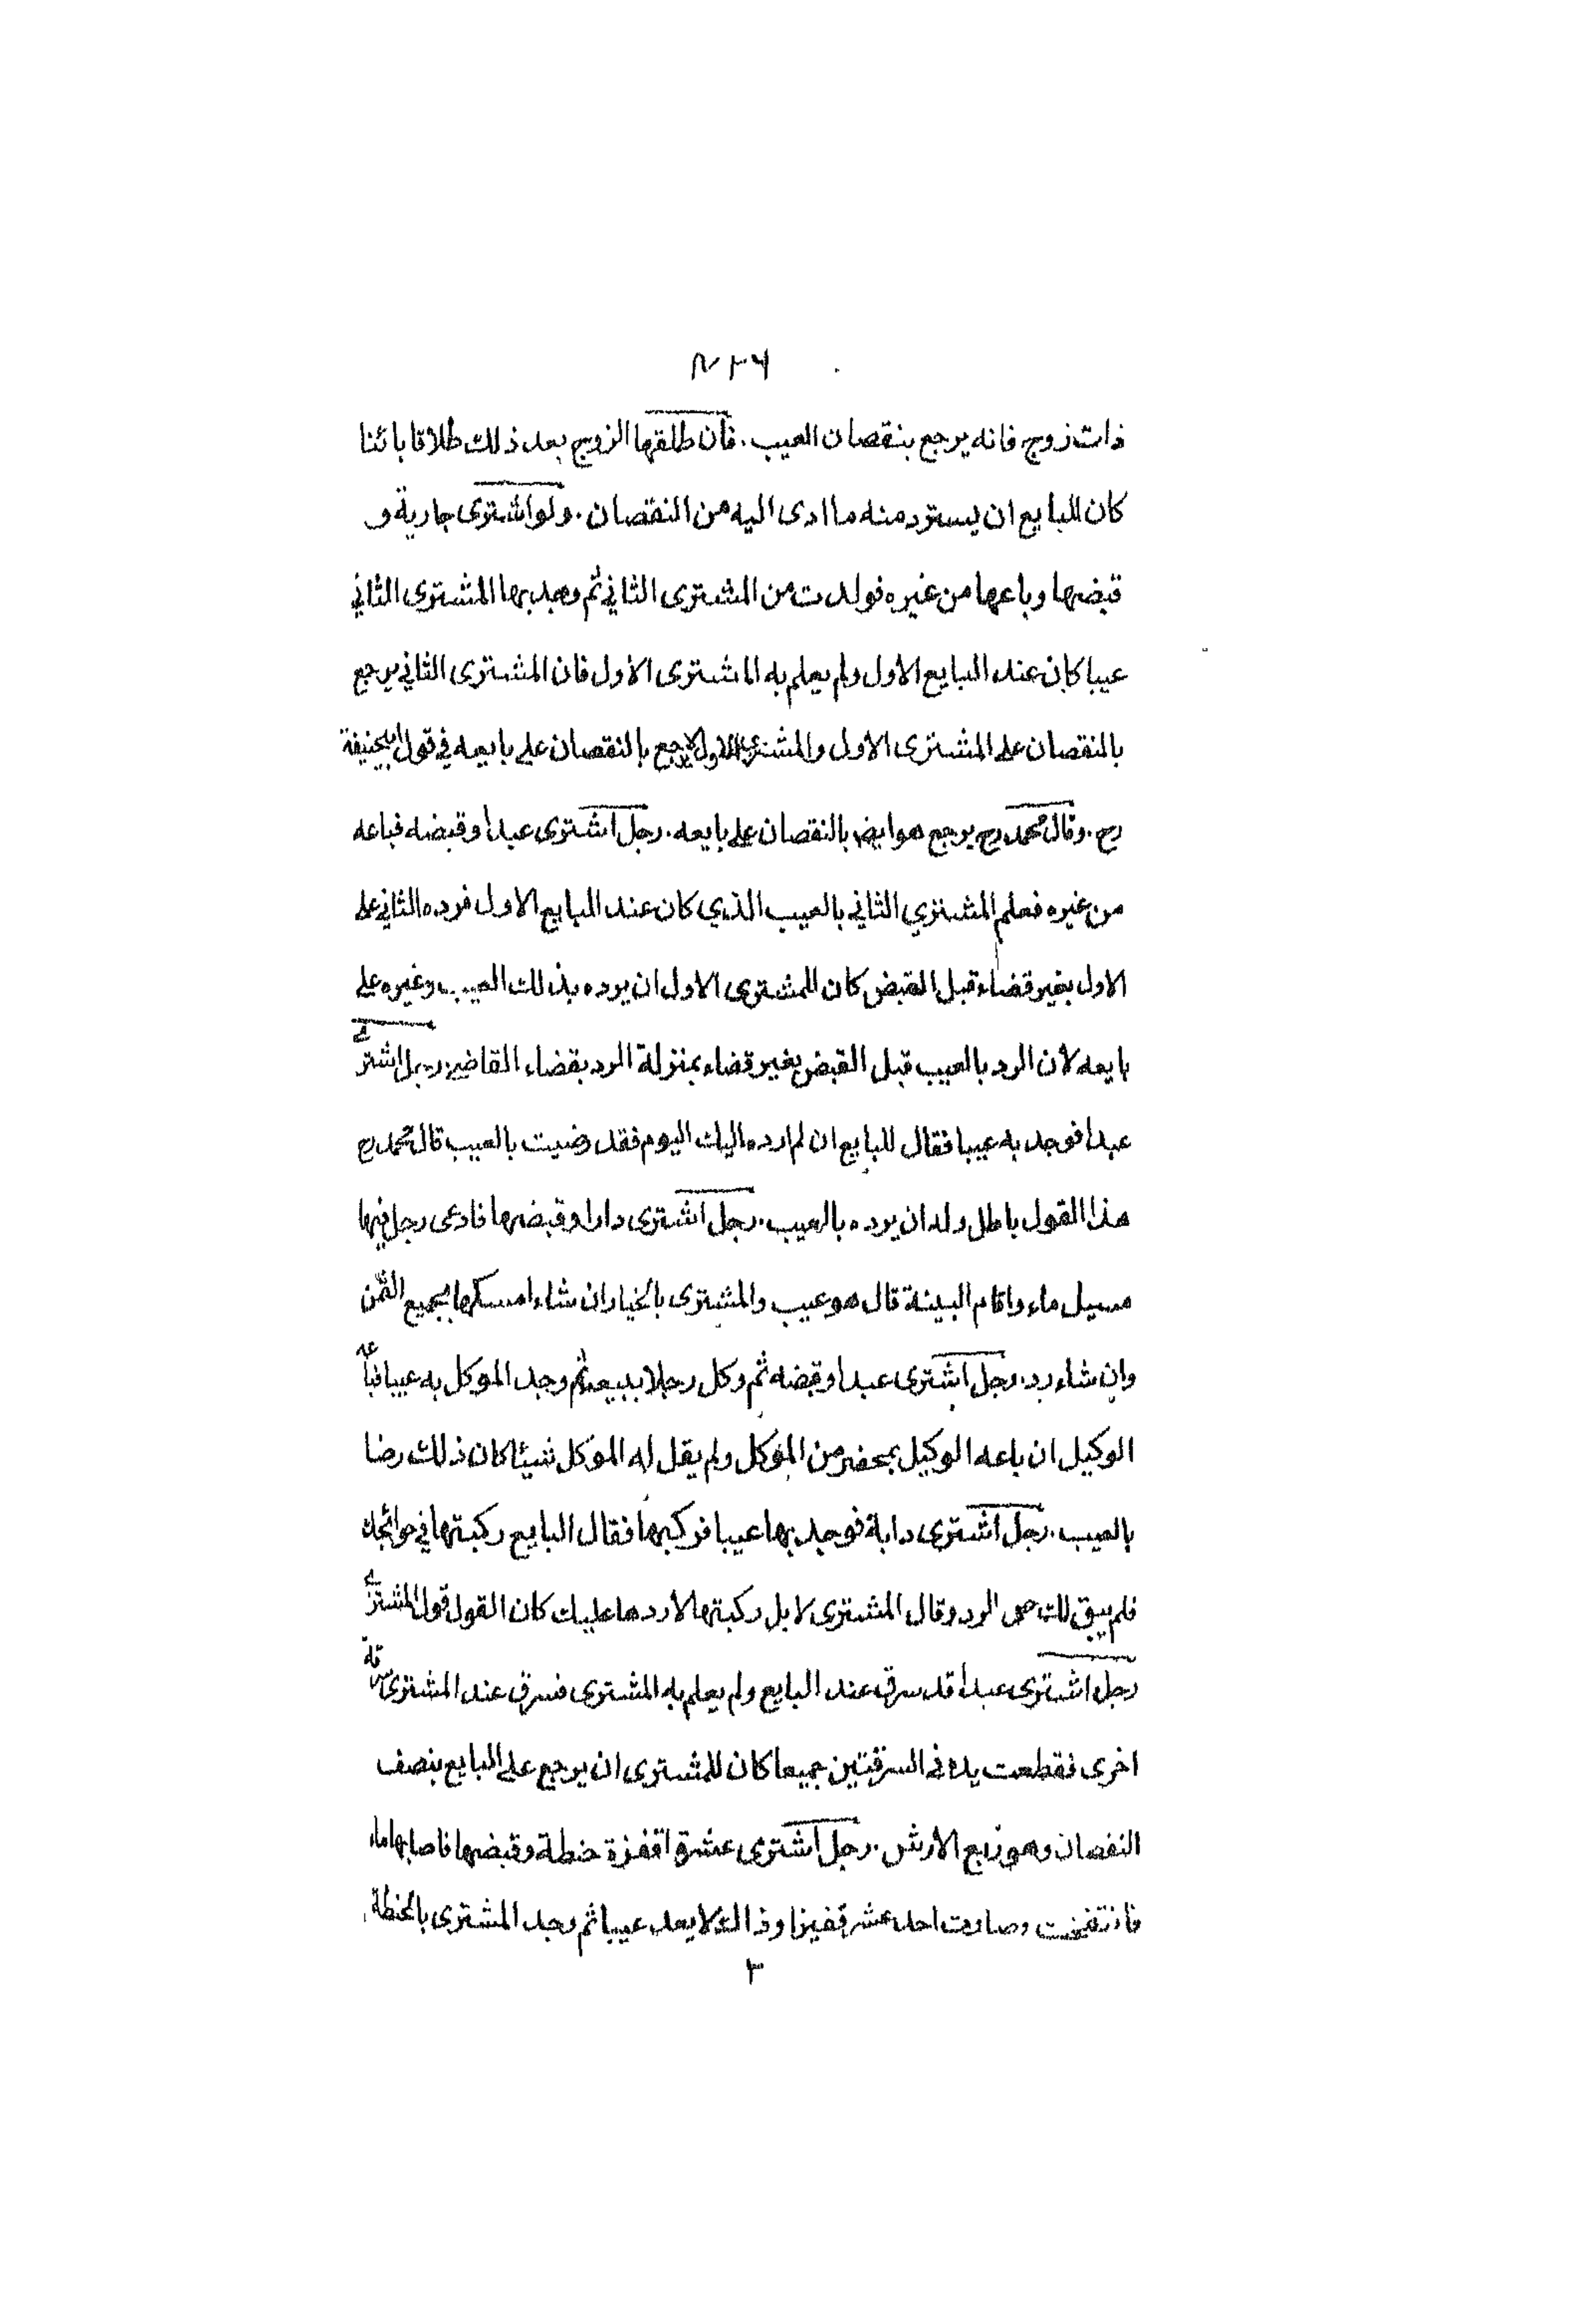 ٤٣٦
ذات زوج فانه يرجع بنقصان العيب. فان طلقها الزوج بعد ذلك طلاقا بائنا
كان للبايع ان يسترد منه ما ادى اليه من النقصان. ولو اشترى جارية و
قبضها وباعها من غيره فولدت من المشترى الثاني ثم وجد بها المشترى الثاني
عيبا كان عند البايع الاول ولم يعلم به المشترى الاول فان المشترى الثاني يرجع
بالنقصان على المشترى الاول والمشترى الاول لا يرجع بالنقصان على بايعه في قول ابيحنيفة
رح. وقال محمد رح يرجع هو ايضا بالنقصان على بايعه. رجل اشترى عبدا وقبضه فباعه
من غيره فعلم المشتري الثاني بالعيب الذي كان عند البايع الاول فرده الثاني على
الاول بغير قضاء قبل القبض كان للمشترى الاول ان يرده بذلك العيب وغيره على
بايعه لان الرد بالعيب قبل القبض بغير قضاء بمنزلة الرد بقضاء القاضي. رجل اشترى
عبدا فوجد به عيبا فقال للبايع ان لم ارده اليك اليوم فقد رضيت بالعيب قال محمد رح
هذا القول باطل وله ان يرده بالعيب. رجل اشترى دارا وقبضها فادعى رجل فيها
مسيل ماء واقام البينة قال هو عيب والمشترى بالخيار ان شاء امسكها بجميع الثمن
وان شاء رد. رجل اشترى عبدا وقبضه ثم وكل رجلا ببيعه ثم وجد الموكل به عيبا فباعه
الوكيل ان باعه الوكيل بمحضر من الموكل ولم يقل له الموكل شيئا كان ذلك رضا
بالعيب. رجل اشترى دابة فوجد بها عيبا فركبها فقال البايع ركبتها في حوائجك
فلم يبق لك حق الرد وقال المشترى لا بل ركبتها لاردها عليك كان القول قول المشترى
رجل اشترى عبدا قد سرق عند البايع ولم يعلم به المشترى فسرق عند المشترى سرقة
اخرى فقطعت يده في السرقتين جميعا كان للمشترى ان يرجع على البايع بنصف
النقصان وهو ربع الارش. رجل اشترى عشرة اقفزة حنطة وقبضها فاصابها ماء
فانتفخت وصارت احد عشر قفيزا وذالك لا يعد عيبا ثم وجد المشترى بالحنطة
٣